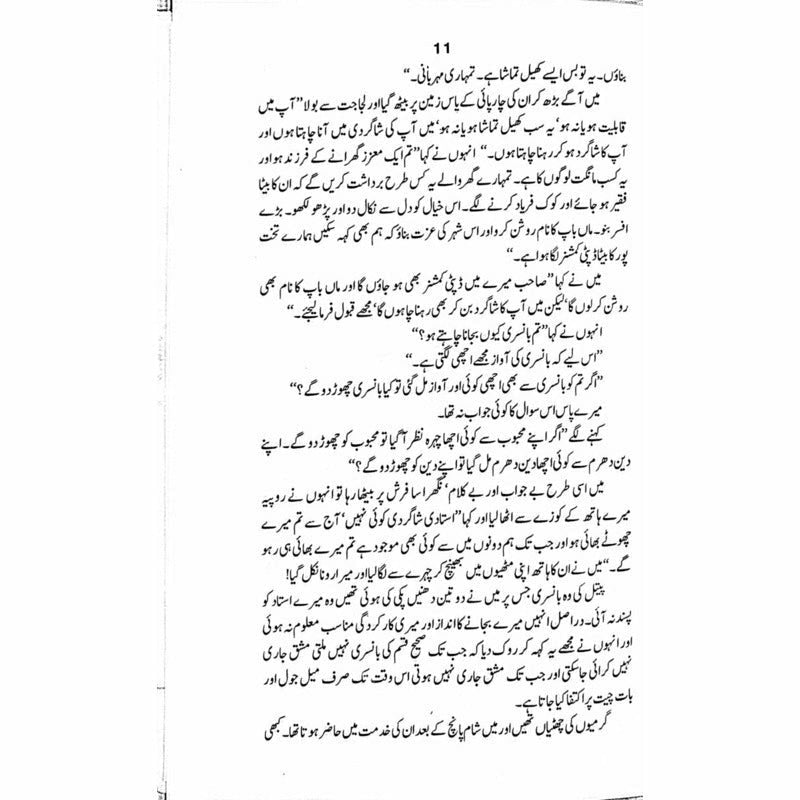 11
بناؤں۔ یہ تو بس ایسے کھیل تماشا ہے۔ تمہاری مہربانی۔“
میں آگے بڑھ کر ان کی چارپائی کے پاس زمین پر بیٹھ گیا اور لجاجت سے بولا ”آپ میں
قابلیت ہو یا نہ ہو‘ یہ سب کھیل تماشا ہو یا نہ ہو‘ میں آپ کی شاگردی میں آنا چاہتا ہوں اور
آپ کا شاگرد ہو کر رہنا چاہتا ہوں۔“ انہوں نے کہا ”تم ایک معزز گھرانے کے فرزند ہو اور
یہ کسب مانگت لوگوں کا ہے۔ تمہارے گھر والے یہ کس طرح برداشت کریں گے کہ ان کا بیٹا
فقیر ہو جائے اور کوک فریاد کرنے لگے۔ اس خیال کو دل سے نکال دو اور پڑھو لکھو۔ بڑے
افسر بنو۔ ماں باپ کا نام روشن کرو اور اس شہر کی عزت بناؤ کہ ہم بھی کہہ سکیں ہمارے تخت
پور کا بیٹا ڈپٹی کمشنر لگا ہوا ہے۔“
میں نے کہا ”صاحب میرے میں ڈپٹی کمشنر بھی ہو جاؤں گا اور ماں باپ کا نام بھی
روشن کر لوں گا‘ لیکن میں آپ کا شاگرد بن کر بھی رہنا چاہوں گا‘ مجھے قبول فرما لیجئے۔“
انہوں نے کہا ”تم بانسری کیوں بجانا چاہتے ہو؟“
”اس لیے کہ بانسری کی آواز مجھے اچھی لگتی ہے۔“
”اگر تم کو بانسری سے بھی اچھی کوئی اور آواز مل گئی تو کیا بانسری چھوڑ دو گے؟“
میرے پاس اس سوال کا کوئی جواب نہ تھا۔
کہنے لگے ”اگر اپنے محبوب سے کوئی اچھا چہرہ نظر آ گیا تو محبوب کو چھوڑ دو گے۔ اپنے
دین دھرم سے کوئی اچھا دین دھرم مل گیا تو اپنے دین کو چھوڑ دو گے؟“
میں اسی طرح بے جواب اور بے کلام‘ نگھرا سا فرش پر بیٹھا رہا تو انہوں نے روپیہ
میرے ہاتھ کے کوزے سے اٹھا لیا اور کہا ”استادی شاگردی کوئی نہیں‘ آج سے تم میرے
چھوٹے بھائی ہو اور جب تک ہم دونوں میں سے کوئی بھی موجود ہے تم میرے بھائی ہی رہو
گے۔“ میں نے ان کا ہاتھ اپنی مٹھیوں میں بھینچ کر چہرے سے لگا لیا اور میرا رونا نکل گیا!
پیتل کی وہ بانسری جس پر میں نے دو تین دھنیں پکی کی ہوئی تھیں وہ میرے استاد کو
پسند نہ آئی۔ دراصل انہیں میرے بجانے کا انداز اور میری کارکردگی مناسب معلوم نہ ہوئی
اور انہوں نے مجھے یہ کہہ کر روک دیا کہ جب تک صحیح قسم کی بانسری نہیں ملتی مشق جاری
نہیں کرائی جا سکتی اور جب تک مشق جاری نہیں ہوتی اس وقت تک صرف میل جول اور
بات چیت پر اکتفا کیا جاتا ہے۔
گرمیوں کی چھٹیاں تھیں اور میں شام پانچ کے بعد ان کی خدمت میں حاضر ہوتا تھا۔ کبھی